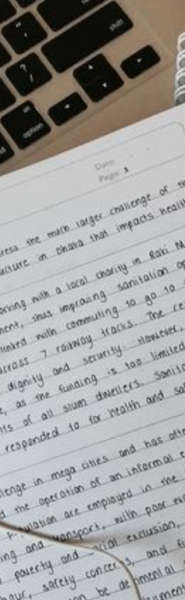 shift
option
Date:
Page: 3
ress the much larger challenge of
culture in Dhaka that impacts health
orking with a local charity in Raki
ment, thus improving sanitation
linked with commuting to go to
across 7 railway tracks. The
dignity and security. However,
e, as the funding is too limited
ts of all slum dwellers.
responded to for health and
lenge in mega cities and has
d the operation of an informal
are employed in the
ing and transport, with poor
poverty and social exclusion,
hour, safety concerns, and
on be